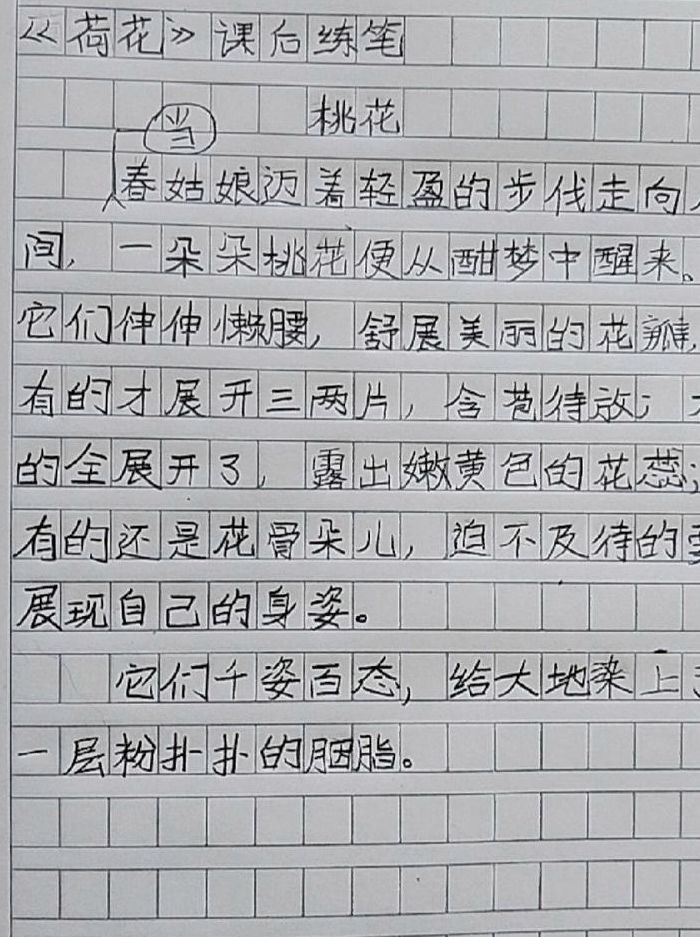 《荷花》课后练笔
桃花
当
春姑娘迈着轻盈的步伐走向
间，一朵朵桃花便从酣梦中醒来、
它们伸伸懒腰，舒展美丽的花瓣，
有的才展开三两片，含苞待放；
的全展开了，露出嫩黄色的花蕊；
有的还是花骨朵儿，迫不及待的要
展现自己的身姿。
它们千姿百态，给大地染上了
一层粉扑扑的胭脂。